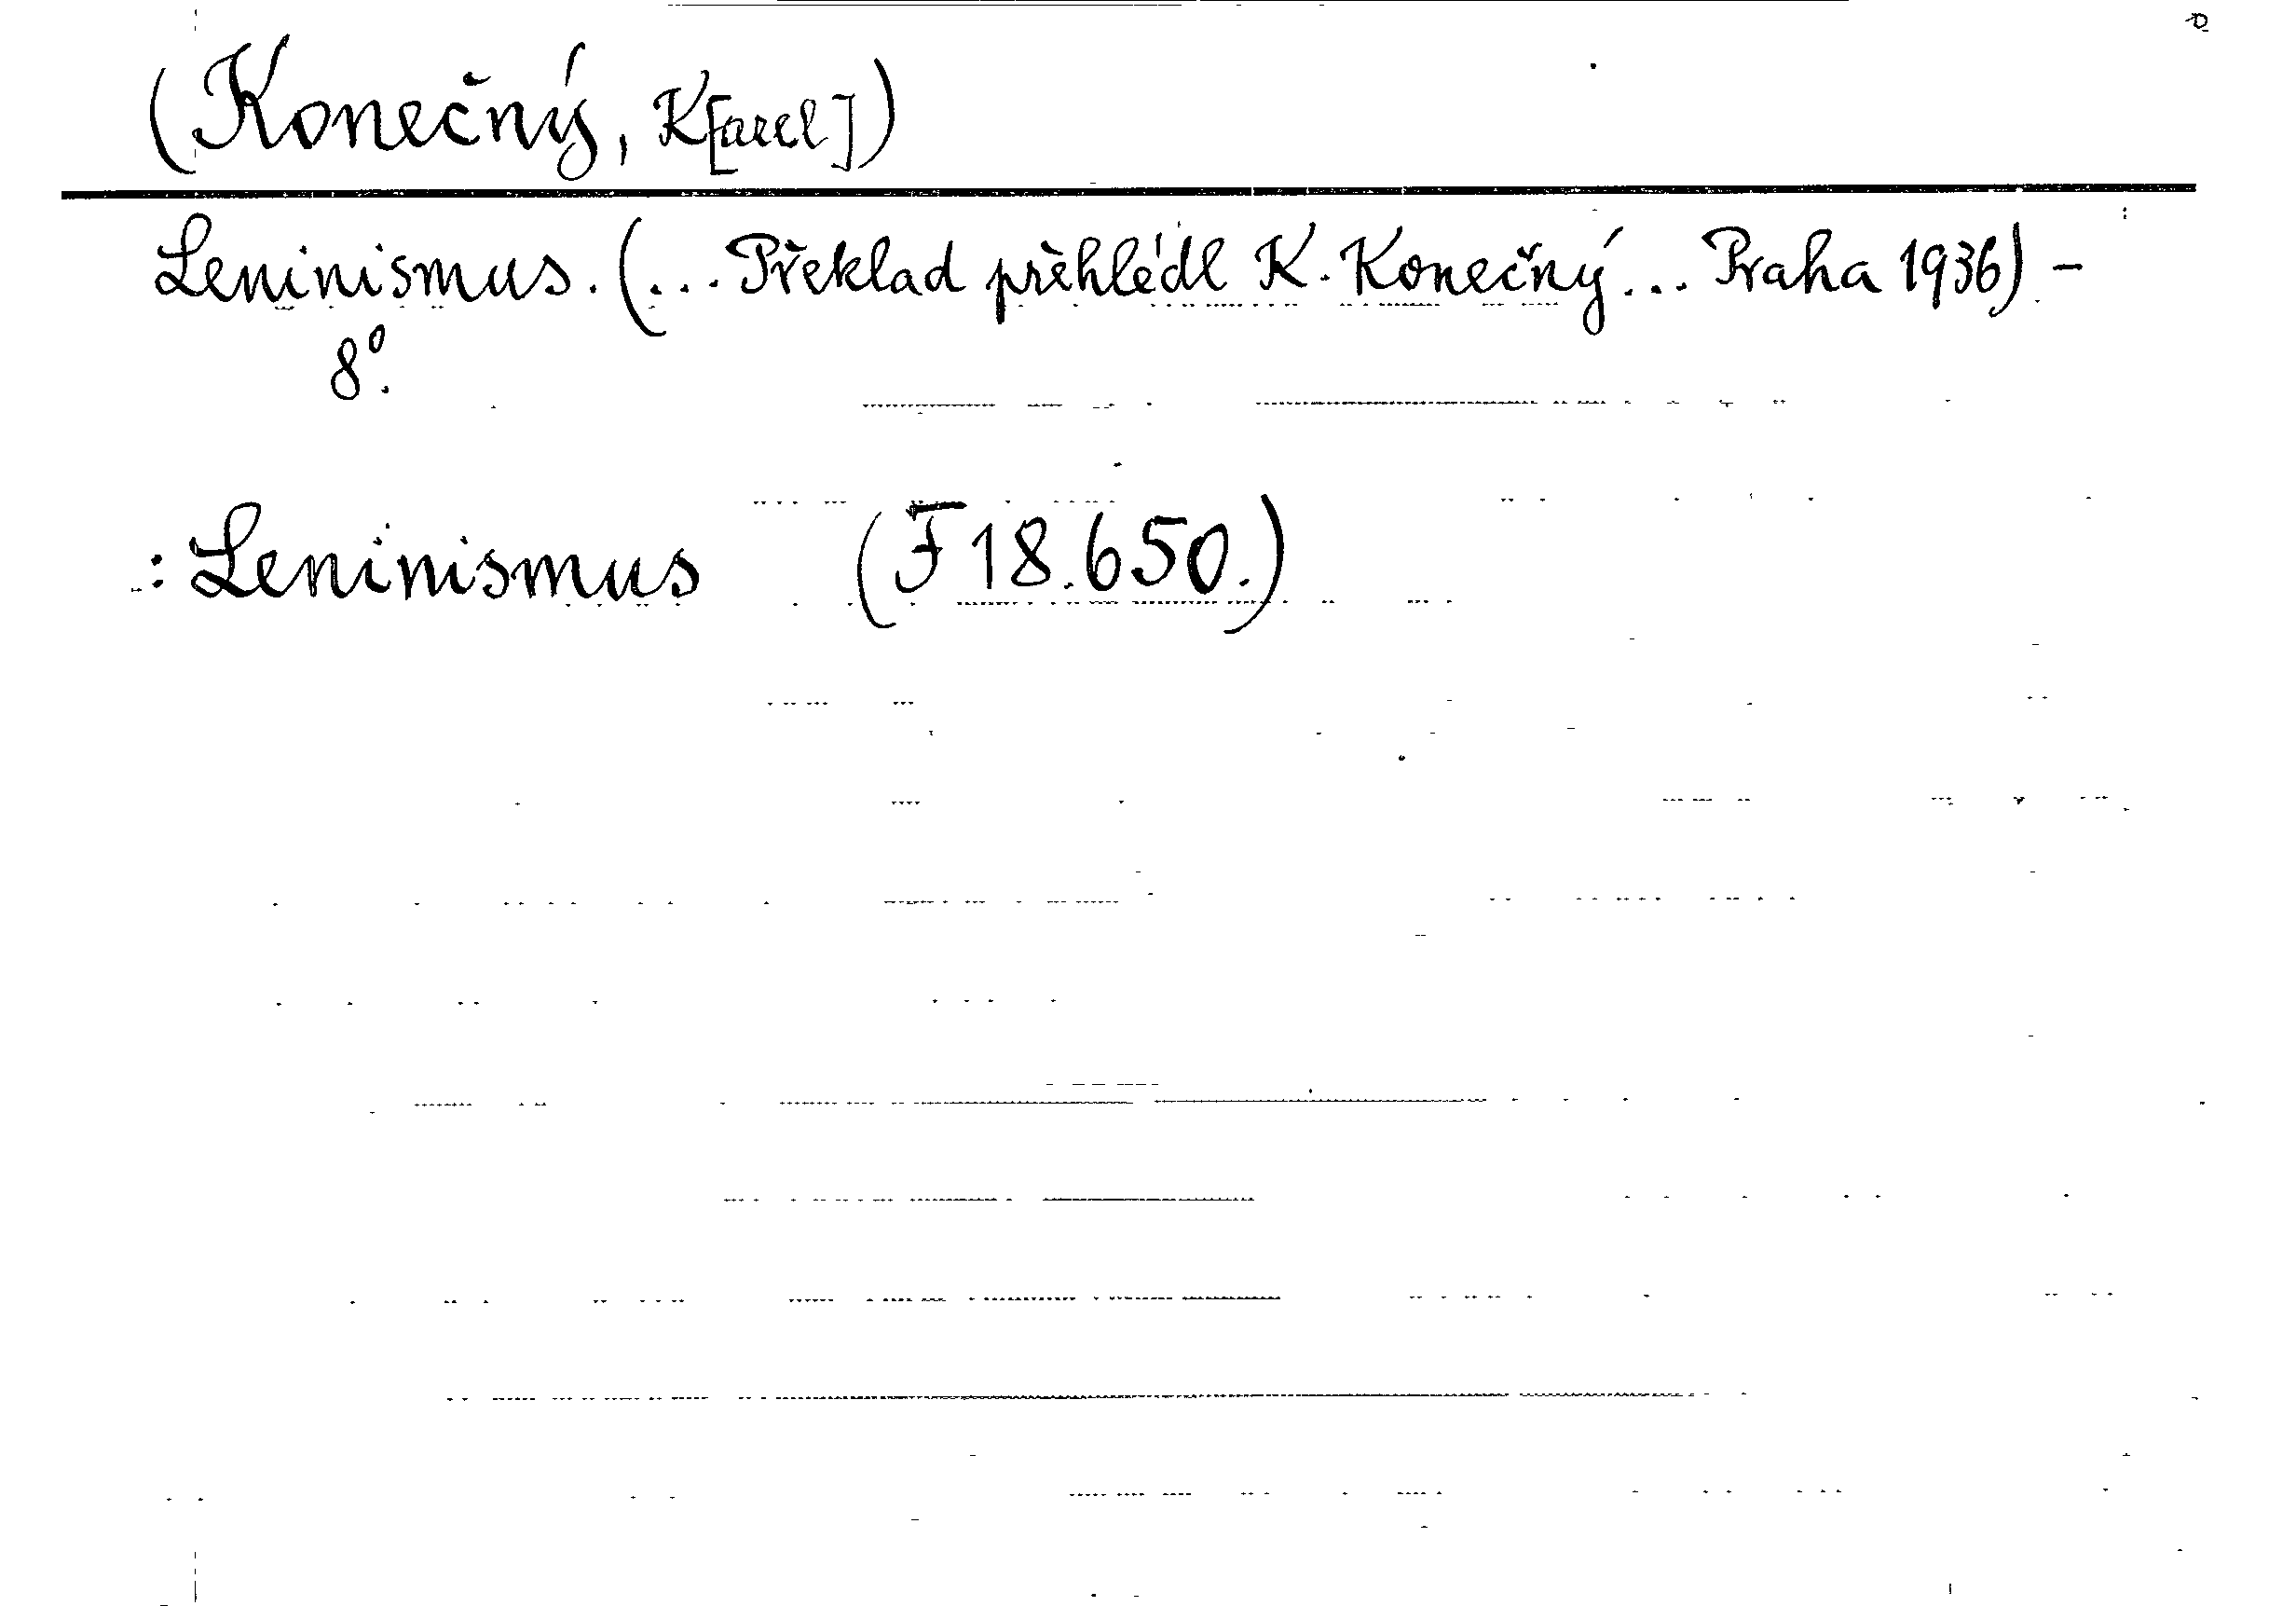 (Konečný, K[arel])
Leninismus. (... Překlad přehlédl K. Konečný... Praha 1936) -
8°.
: Leninismus (F 18.650.)